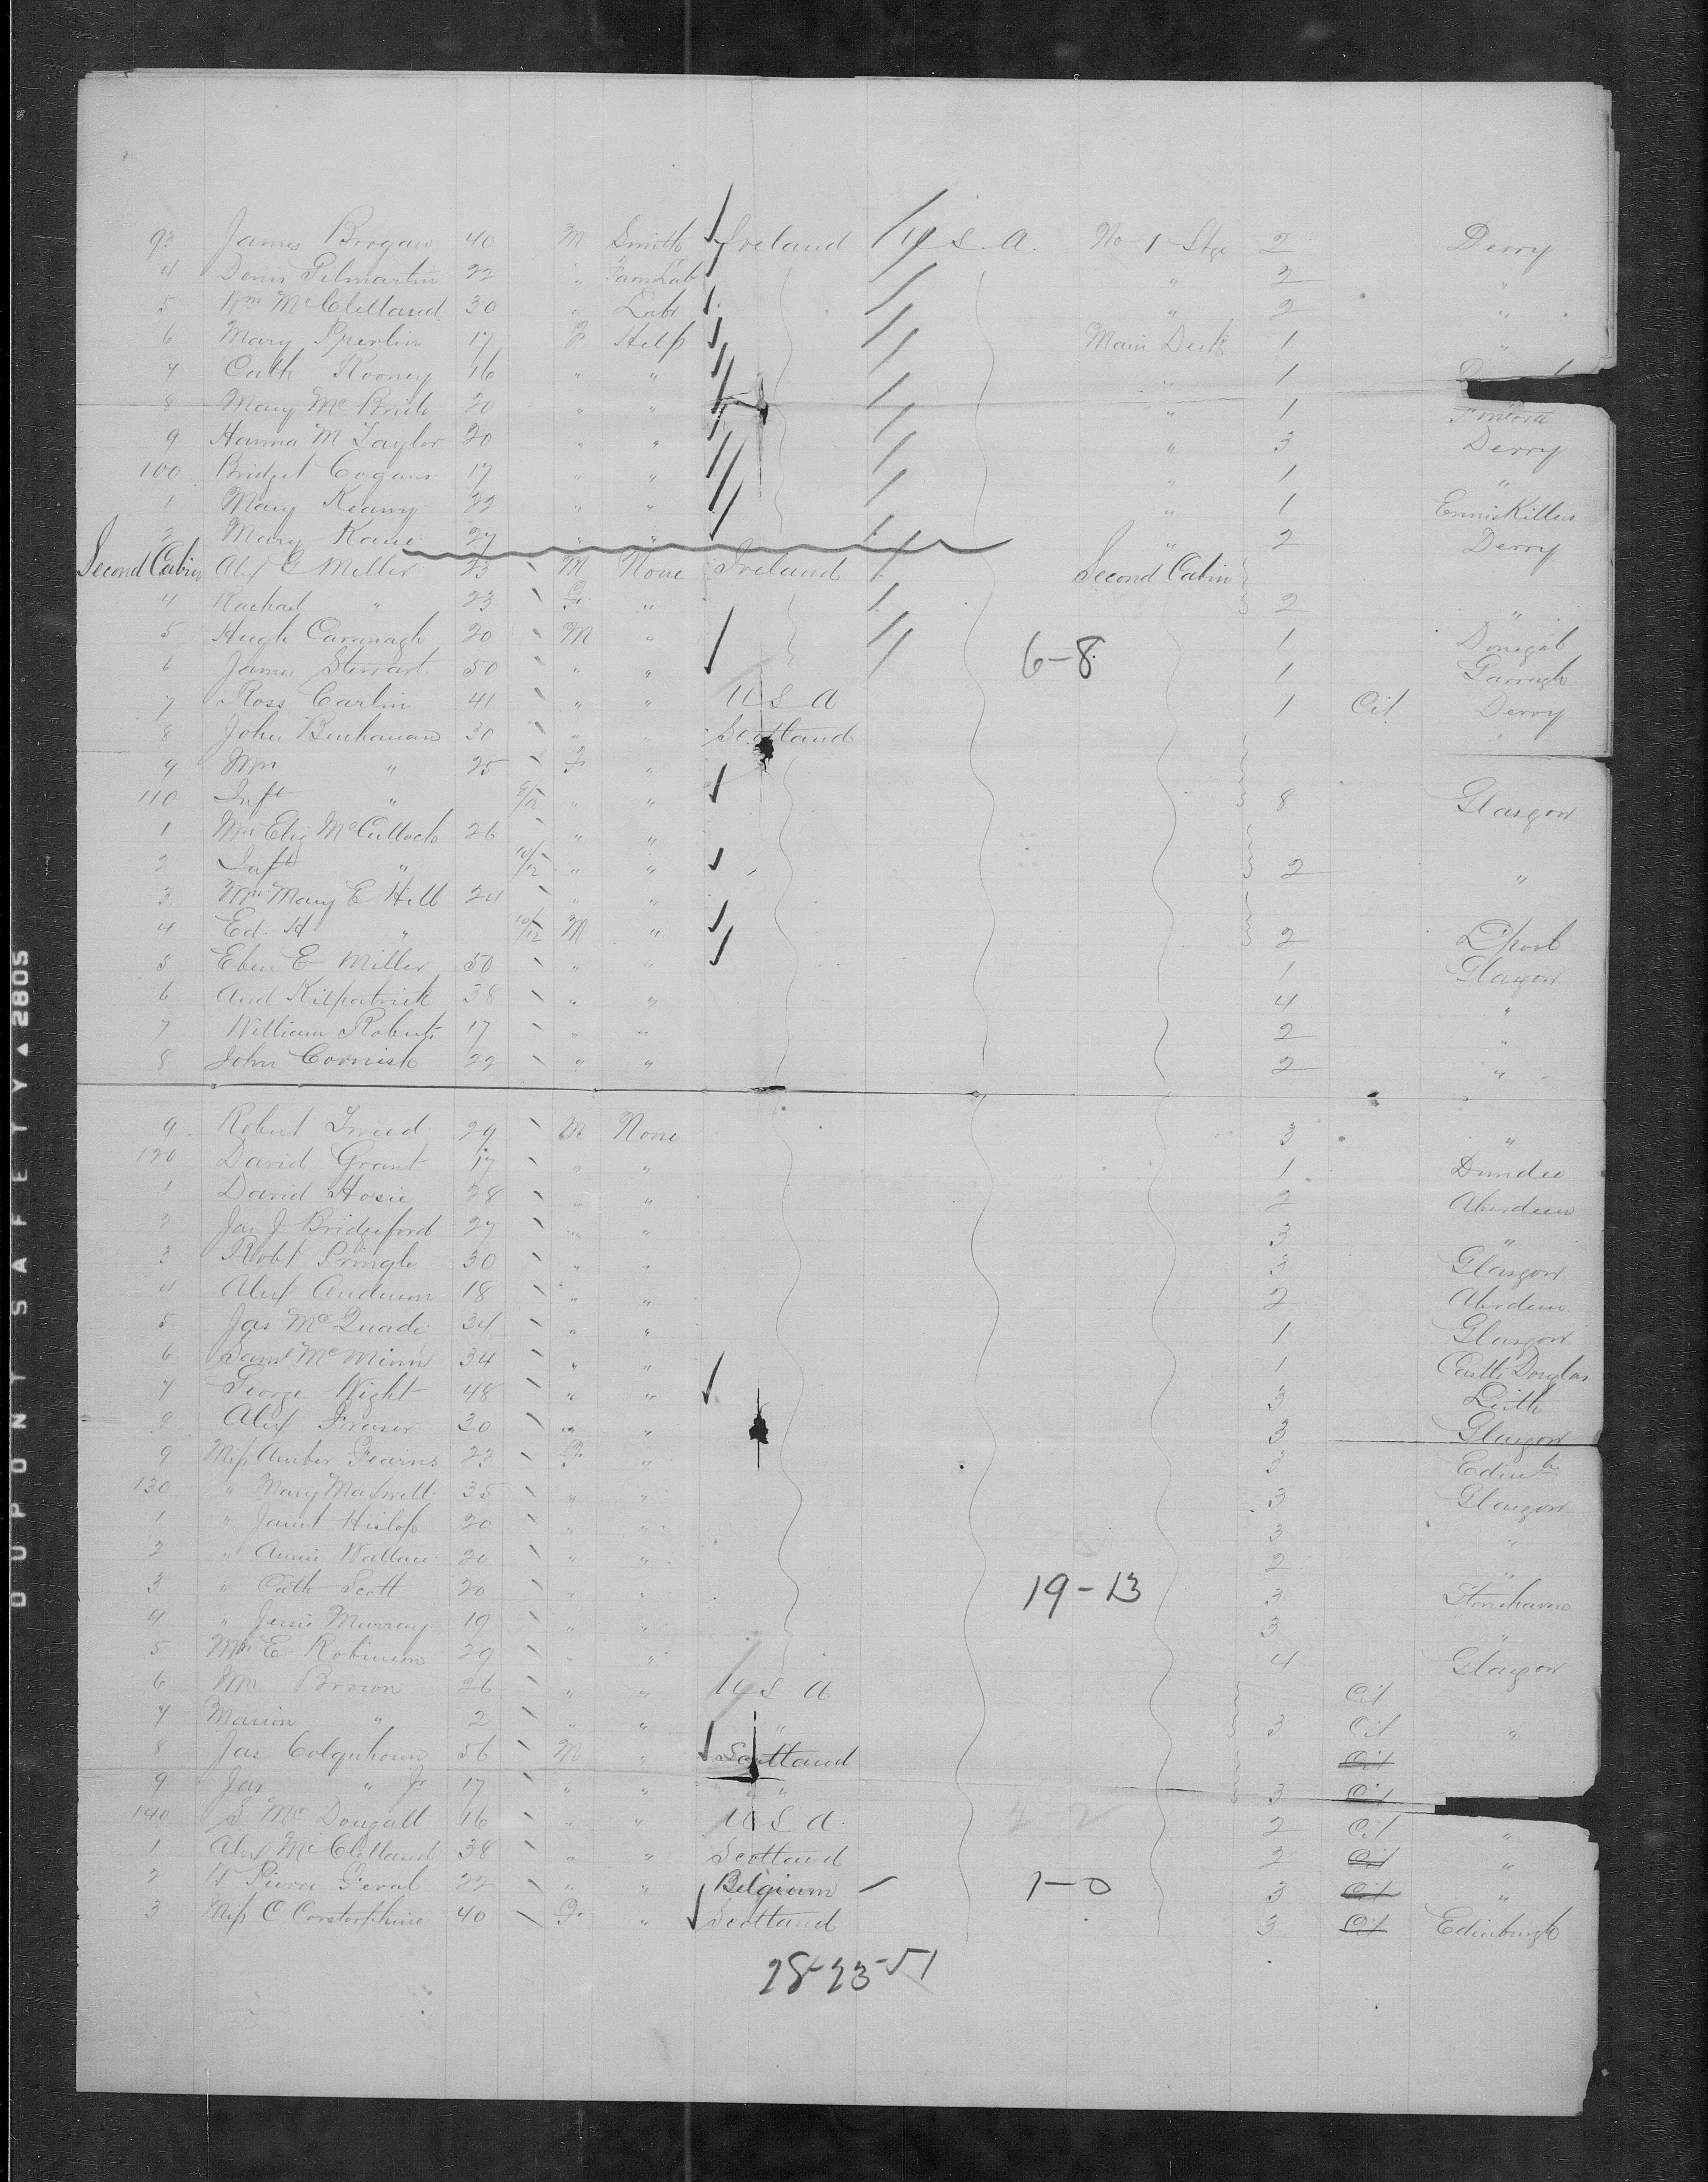 93 James Brogan 40 M Smith Ireland U S A. No 1 Stge 2 Derry
4 Denis Gilmartin 22 " Farm Lab " 2 "
5 Wm McClelland 30 " Labr " 2 "
6 Mary 17 F Help Main Deck 1 "
7 Cath Rooney 16 " " " 1
8 Mary McBride 20 " " " 1
9 Hanna M Taylor 20 " " " 3 Derry
100 Bridget Cogans 17 " " " 1 "
1 Mary Keany 22 " " " 1 EnnisKillen
2 Mary Kane 27 " " " 2 Derry
Second Cabin Alex G Miller 23 M None Ireland Second Cabin
4 Rachael " 23 F " 2 "
5 Hugh Cavanagh 20 M " 1 Donegal
6 James Stewart 50 " " 6-8 1 Garvagh
7 Ross Carlin 41 " " U S A 1 Cit Derry
8 John Buchanan 30 " " Scotland
9 Mrs " 25 F "
110 Inft " " " 8 Glasgow
1 Mrs Eliz McCulloch 26 " "
2 Inft " 10/12 " " 2 "
3 Mrs Mary E Hill 24 " "
4 Ed. H " 10/12 M " 2 L'pool
5 Eben E Miller 50 " " 1 Glasgow
6 And Kilpatrick 38 " " 4 "
7 William Roberts 17 " " 2 "
8 John Cornish 22 " " 2 "
9 Robert Tweed 29 M None 3 "
120 David Grant 17 " " 1 Dundee
1 David Hosie 28 " " 2 Aberdeen
2 Jas J Bridgeford 27 " " 3 "
3 Robt Pringle 30 " " 3 Glasgow
4 Alex Anderson 18 " " 2 Aberdeen
5 Jas McQuade 34 " " 1 Glasgow
6 Saml McMinn 34 " " 1 Castle Douglas
7 George Wight 48 " " 3 Leith
8 Alex Fraser 30 " " 3 Glasgow
9 Miss Fearns 23 F " 3 Edinh
130 " Mary Maxwell 35 " " 3 Glasgow
1 " Janet Hislop 20 " " 3 "
2 " Annie Wallace 20 " " 2 "
3 " Cath Scott 20 " " 19-13 3 Stonehaven
4 " Jessie Murray 19 " " 3 "
5 Mrs E Robinson 29 " " 4 Glasgow
6 Mrs Brown 26 " " U S A Cit
7 Marion " 2 " " " 3 Cit "
8 Jas Colquhoun 56 M " Scotland Cit
9 Jas " Jr 17 " " " " 3 Cit
140 S McDougall 16 " " U S A. 2 Cit "
1 Alex McClelland 38 " " Scotland 2 Cit "
2 Pierre Geval 22 " " Belgium 1-0 3 Cit "
3 Miss C Corstorphine 40 F " Scotland 3 Cit Edinburgh
28-23-51
DUPONT SAFETY ▲ 2805